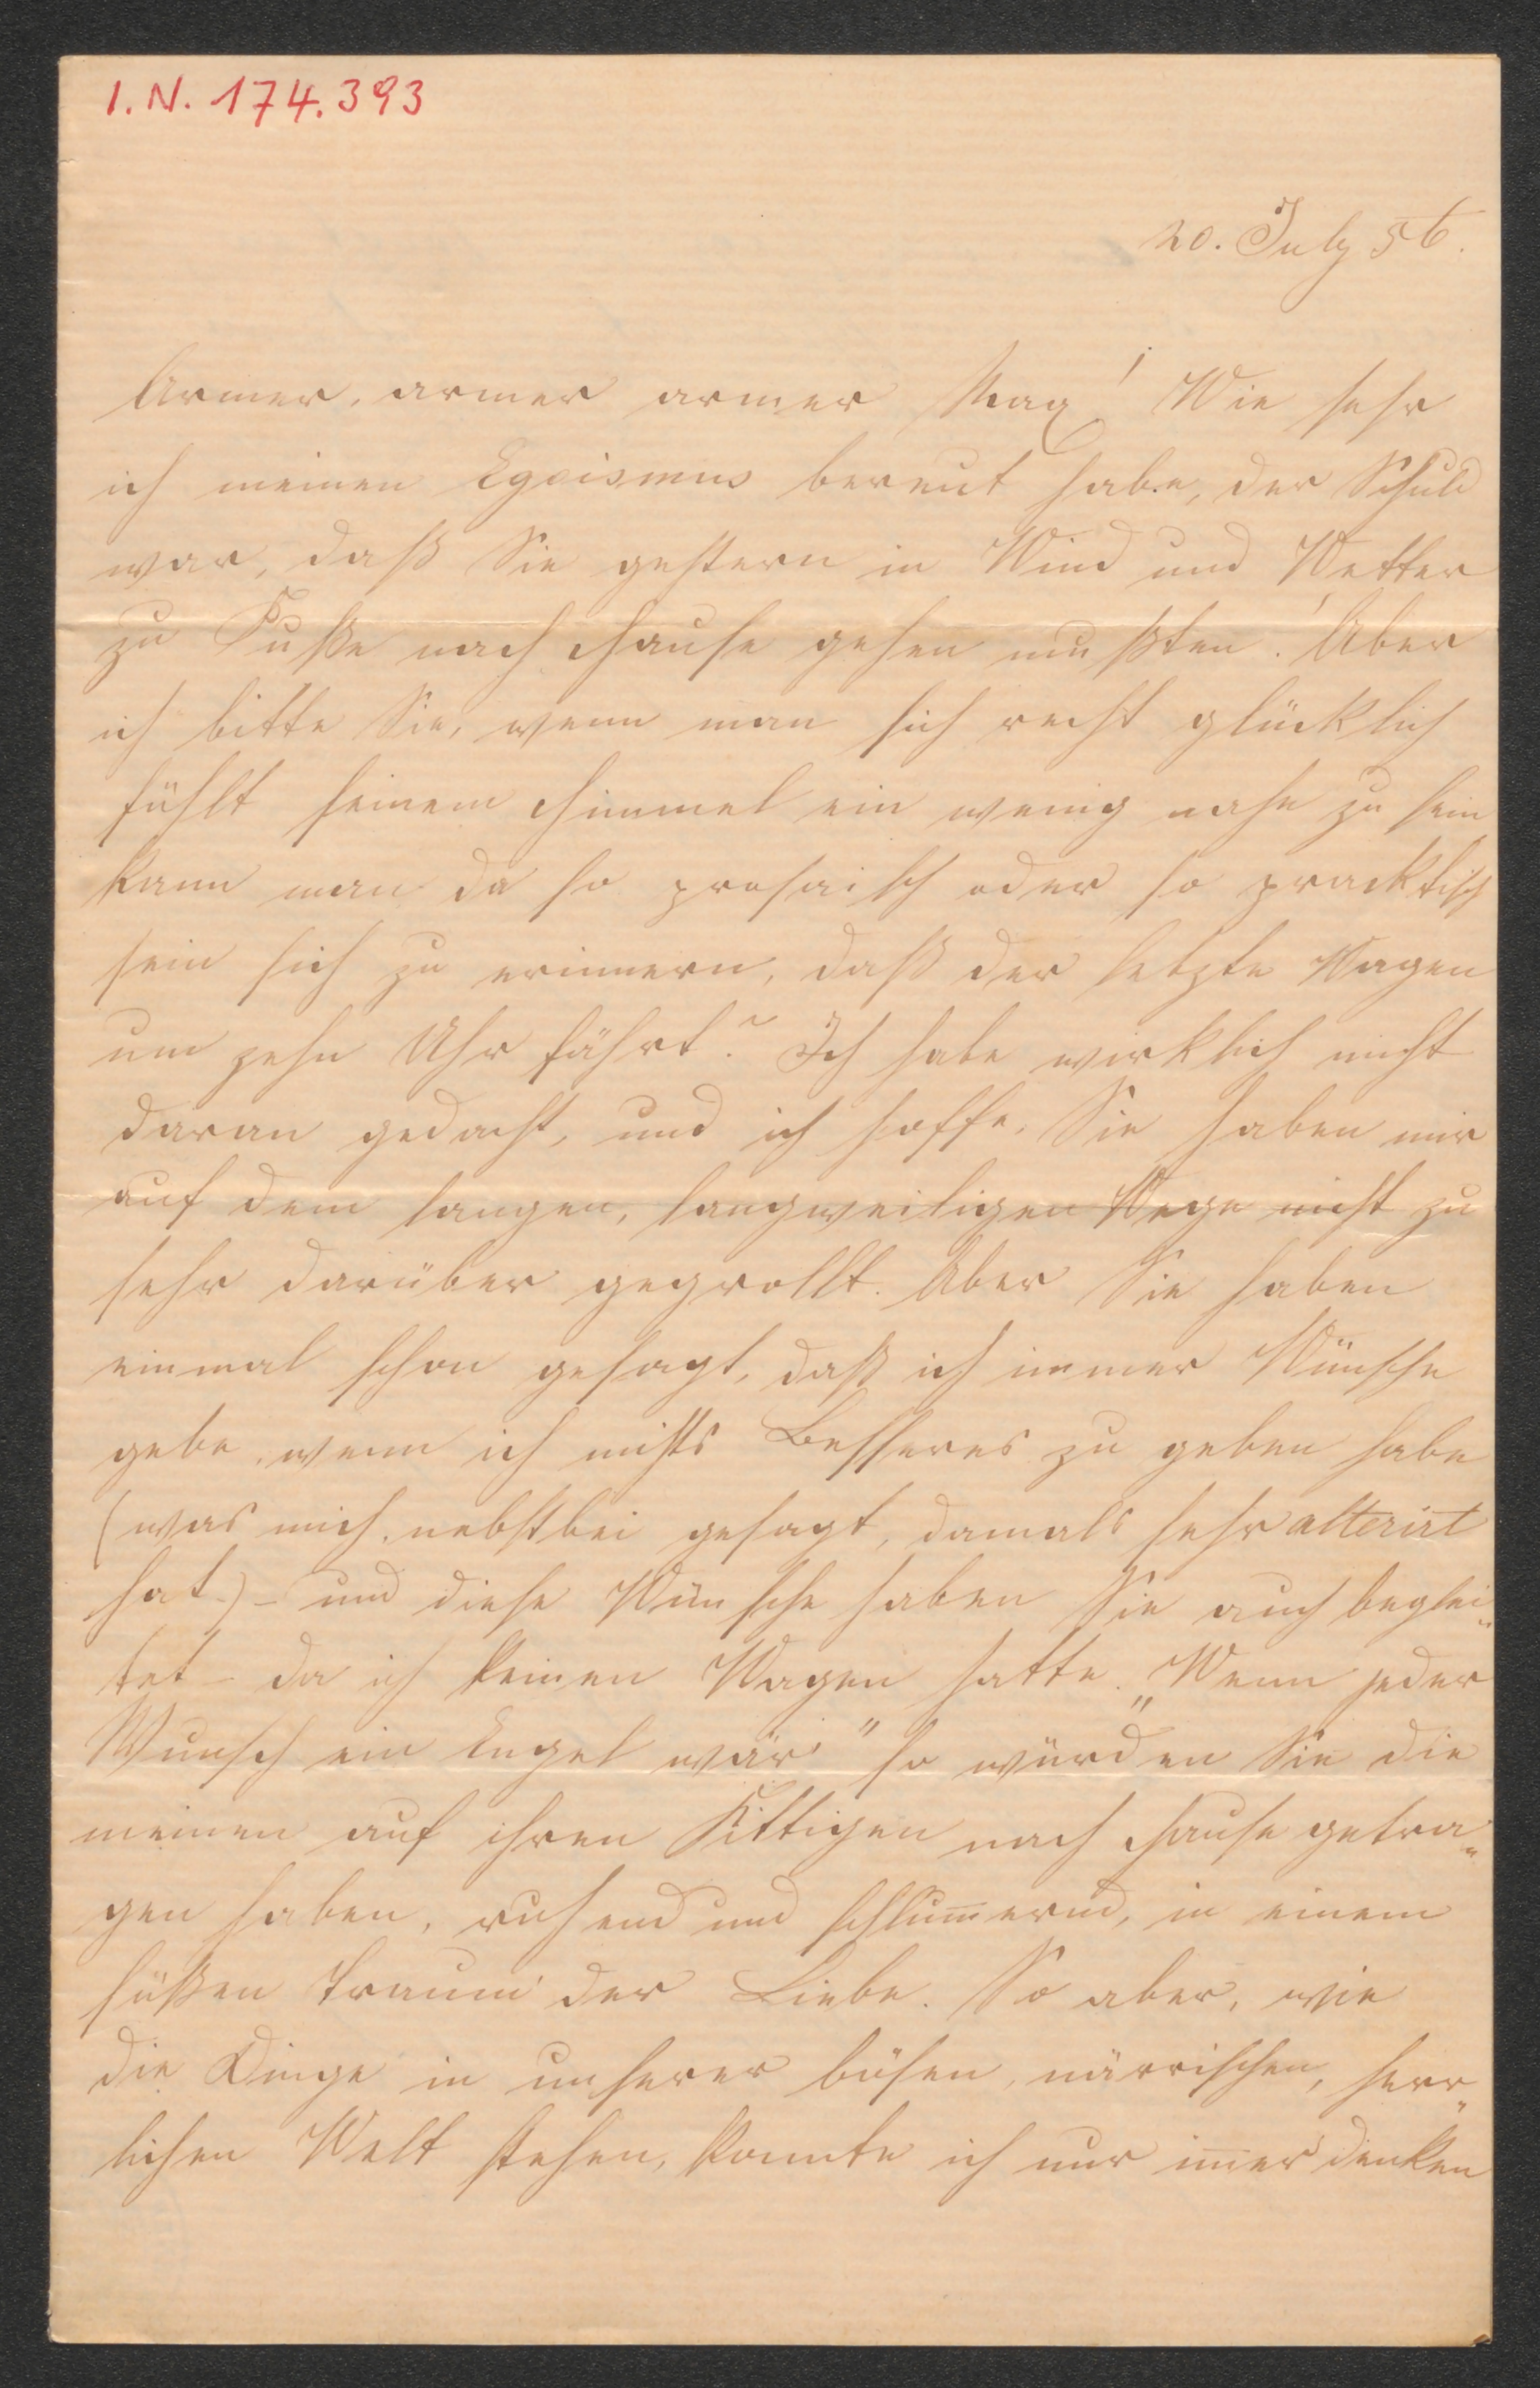 I.N. 174.393
20. July 56.
Armer, armer armer Max! Wie sehr
ich meinen Egoismus bereut habe, der Schuld
war, daß Sie gestern in Wind und Wetter
zu Fuße nach Hause gehen mußten! Aber
ich bitte Sie, wenn man sich recht glücklich
fühlt seinem Himmel ein wenig nahe zu sein
kann man da so prosaisch oder so pracktisch
sein sich zu erinnern, daß der letzte Wagen
um zehn Uhr fährt? Ich habe wirklich nicht
daran gedacht, und ich hoffe, Sie haben mir
auf dem langen, langweiligen Wege nicht zu
sehr darüber gegrollt. Aber Sie haben
einmal schon gesagt, daß ich immer Wünsche
gebe, wenn ich nichts Besseres zu geben habe
(was mich, nebstbei gesagt, damals sehr alterirt
hat.) – und diese Wünsche haben Sie auch beglei„
tet – da ich keinen Wagen hatte. „Wenn jeder
Wunsch ein Engel wär'" so würden Sie die
meinen auf ihren Fittigen nach Hause getra„
gen haben, ruhend und schlum̅ernd, in einem
süßen Traum der Liebe. So aber, wie
die Dinge in unserer bösen, närrischen, herr„
lichen Welt stehen, konnte ich nur im̅er denken